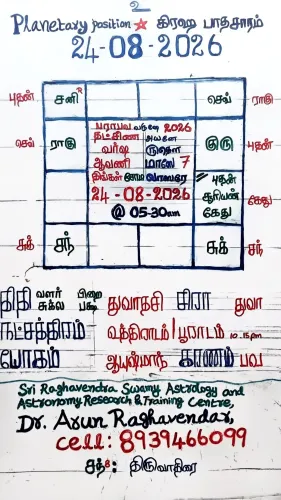 2
Planetary position ☆ கிரஹ பாதசாரம்
24-08-2026
புதன் சனி R செவ் ராகு
பராபவ வருஷ 2026
தட்சிண
வர்ஷ ருதொ
செவ் ராகு குரு புதன்
ஆவணி மாஸே 7
திங்கள் சோம வாஸரே
24-08-2026
@ 05-30am
புதன்
சூரியன்
கேது கேது
சுக் சந் சுக் சந்
திதி வளர் பிறை சுக்ல பக்ஷ துவாதசி சிரா துவா
நட்சத்திரம் உத்திராடம் / பூராடம் 10.15pm
யோகம் ஆயுஷ்மாந் கரணம் பவ
Sri Raghavendra Swamy Astrology and
Astronomy Research & Training Centre,
Dr. Arun Raghavendar,
cell: 8939466099
சந்: திருவாதிரை